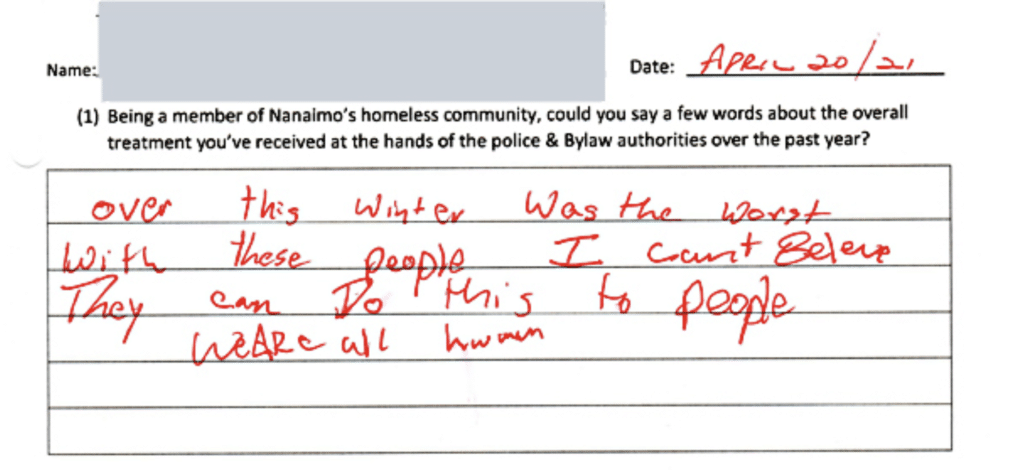 Name:
Date: APRIL 20/21
(1) Being a member of Nanaimo's homeless community, could you say a few words about the overall
treatment you've received at the hands of the police & Bylaw authorities over the past year?
over this winter was the worst
with these people I can't Beleve
They can Do this to people
WeARe all human